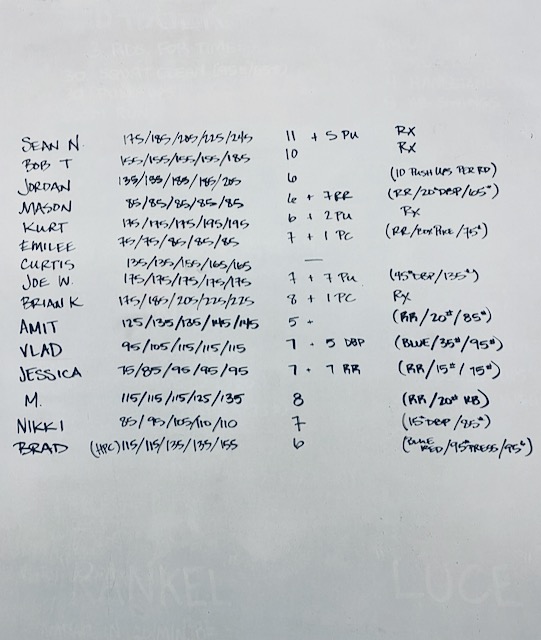 SEAN N. 175/185/205/225/245 11 + 5 PU RX
BOB T 155/155/155/155/185 10 RX
JORDAN 135/155/185/185/205 6 (10 PUSH UPS PER RD)
MASON 85/85/85/85/85 6 + 7RR (RR/20# DBP/65#)
KURT 175/175/175/195/195 6 + 2 PU RX
EMILEE 75/75/85/85/85 7 + 1 PC (RR/BOX PIKE/75#)
CURTIS 135/135/155/165/165 —
JOE W. 175/175/175/175/175 7 + 7 PU (45# DBP/135#)
BRIAN K 175/185/205/225/225 8 + 1 PC RX
AMIT 125/135/135/145/145 5 + (RR/20#/85#)
VLAD 95/105/115/115/115 7 + 5 DBP (BLUE/35#/95#)
JESSICA 75/85/95/95/95 7 + 7 RR (RR/15#/75#)
M. 115/115/115/125/135 8 (RR/20# KB)
NIKKI 85/95/105/110/110 7 (15# DBP/85#)
BRAD (HPC) 115/115/135/135/155 6 (BLUE RED/95# PRESS/95#)
RANKEL "LUCE"